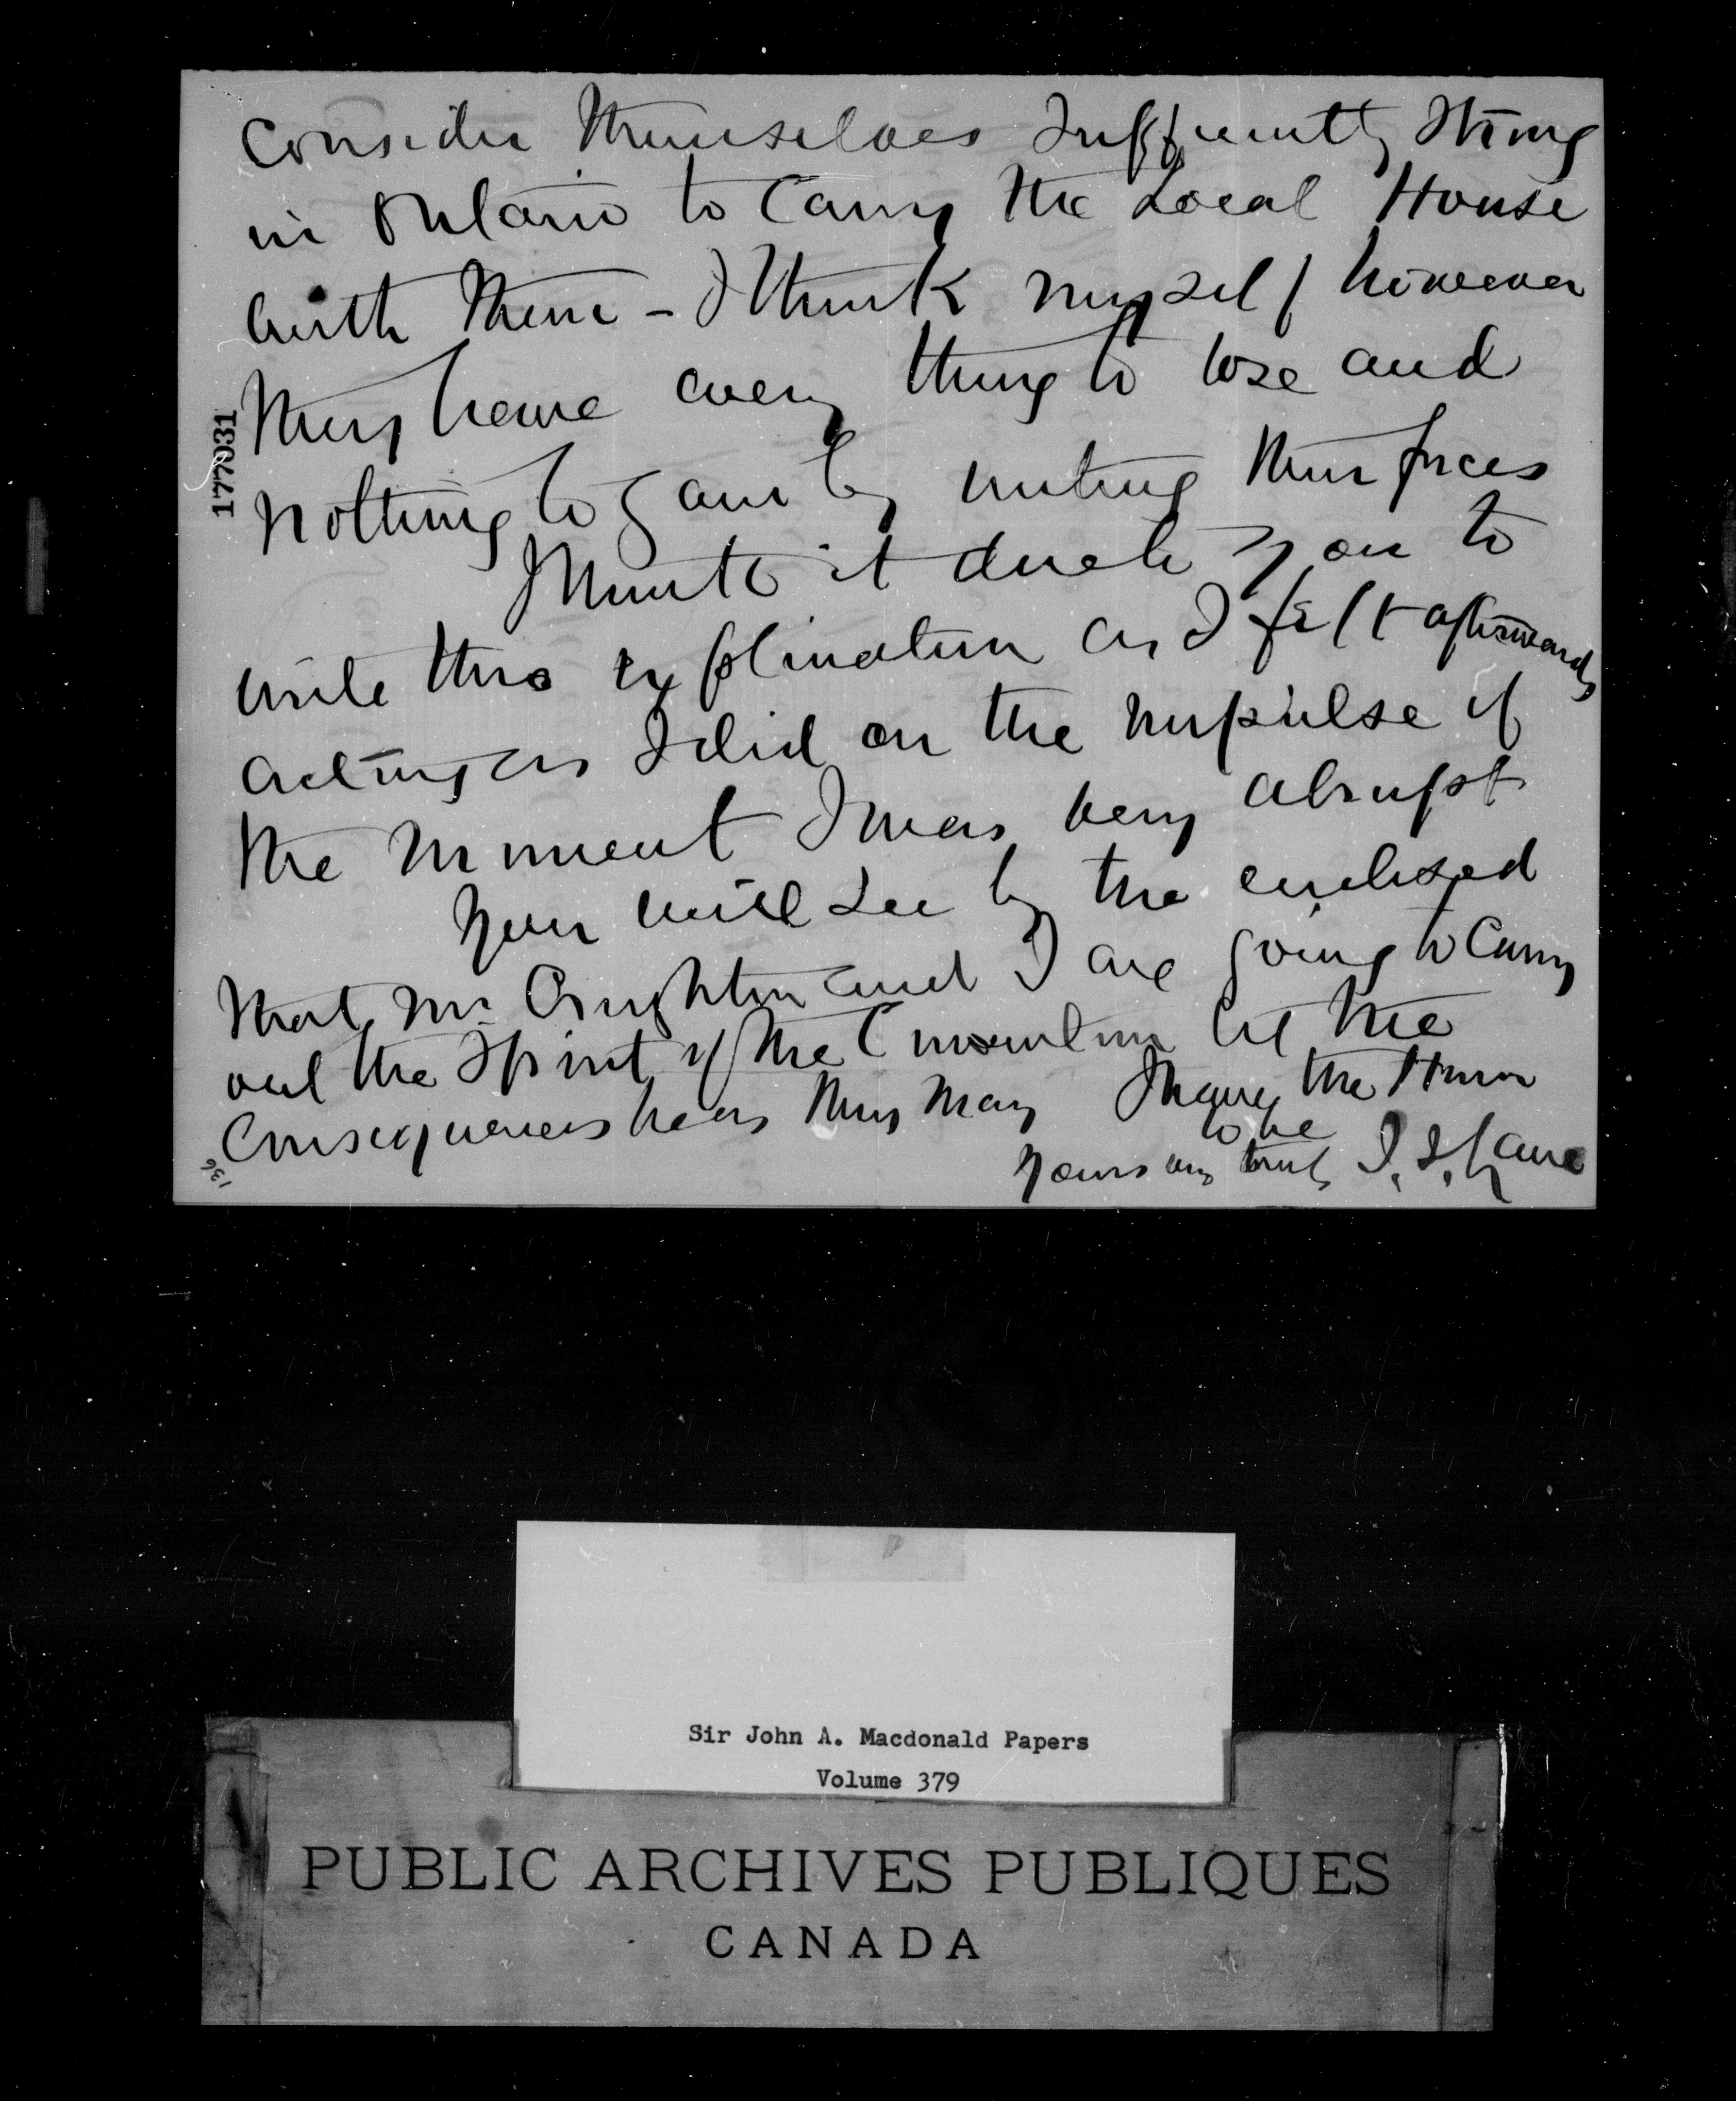 Consider themselves sufficiently strong
in Ontario to carry the Local House
with them - I think myself however
they have every thing to lose and
nothing to gain by uniting their forces
I think it due to you to
write this explination as I felt afterwards
acting as I did on the impulse of
the moment I was very abrupt
You will see by the enclosed
that Mr. and I are going to carry
out the spirit of the Convention let the
Consequences be as they may I have the Honor
to be
yours very truly
177031
136
Sir John A. Macdonald Papers
Volume 379
PUBLIC ARCHIVES PUBLIQUES
CANADA